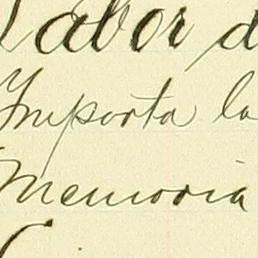 Labor d
Importa la
Memoria